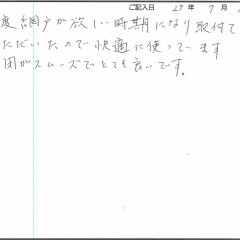 ご記入日 27年 7月
度網戸が欲しい時期になり取付て
ただいたので快適に使っています
閉がスムーズでとても良いです。